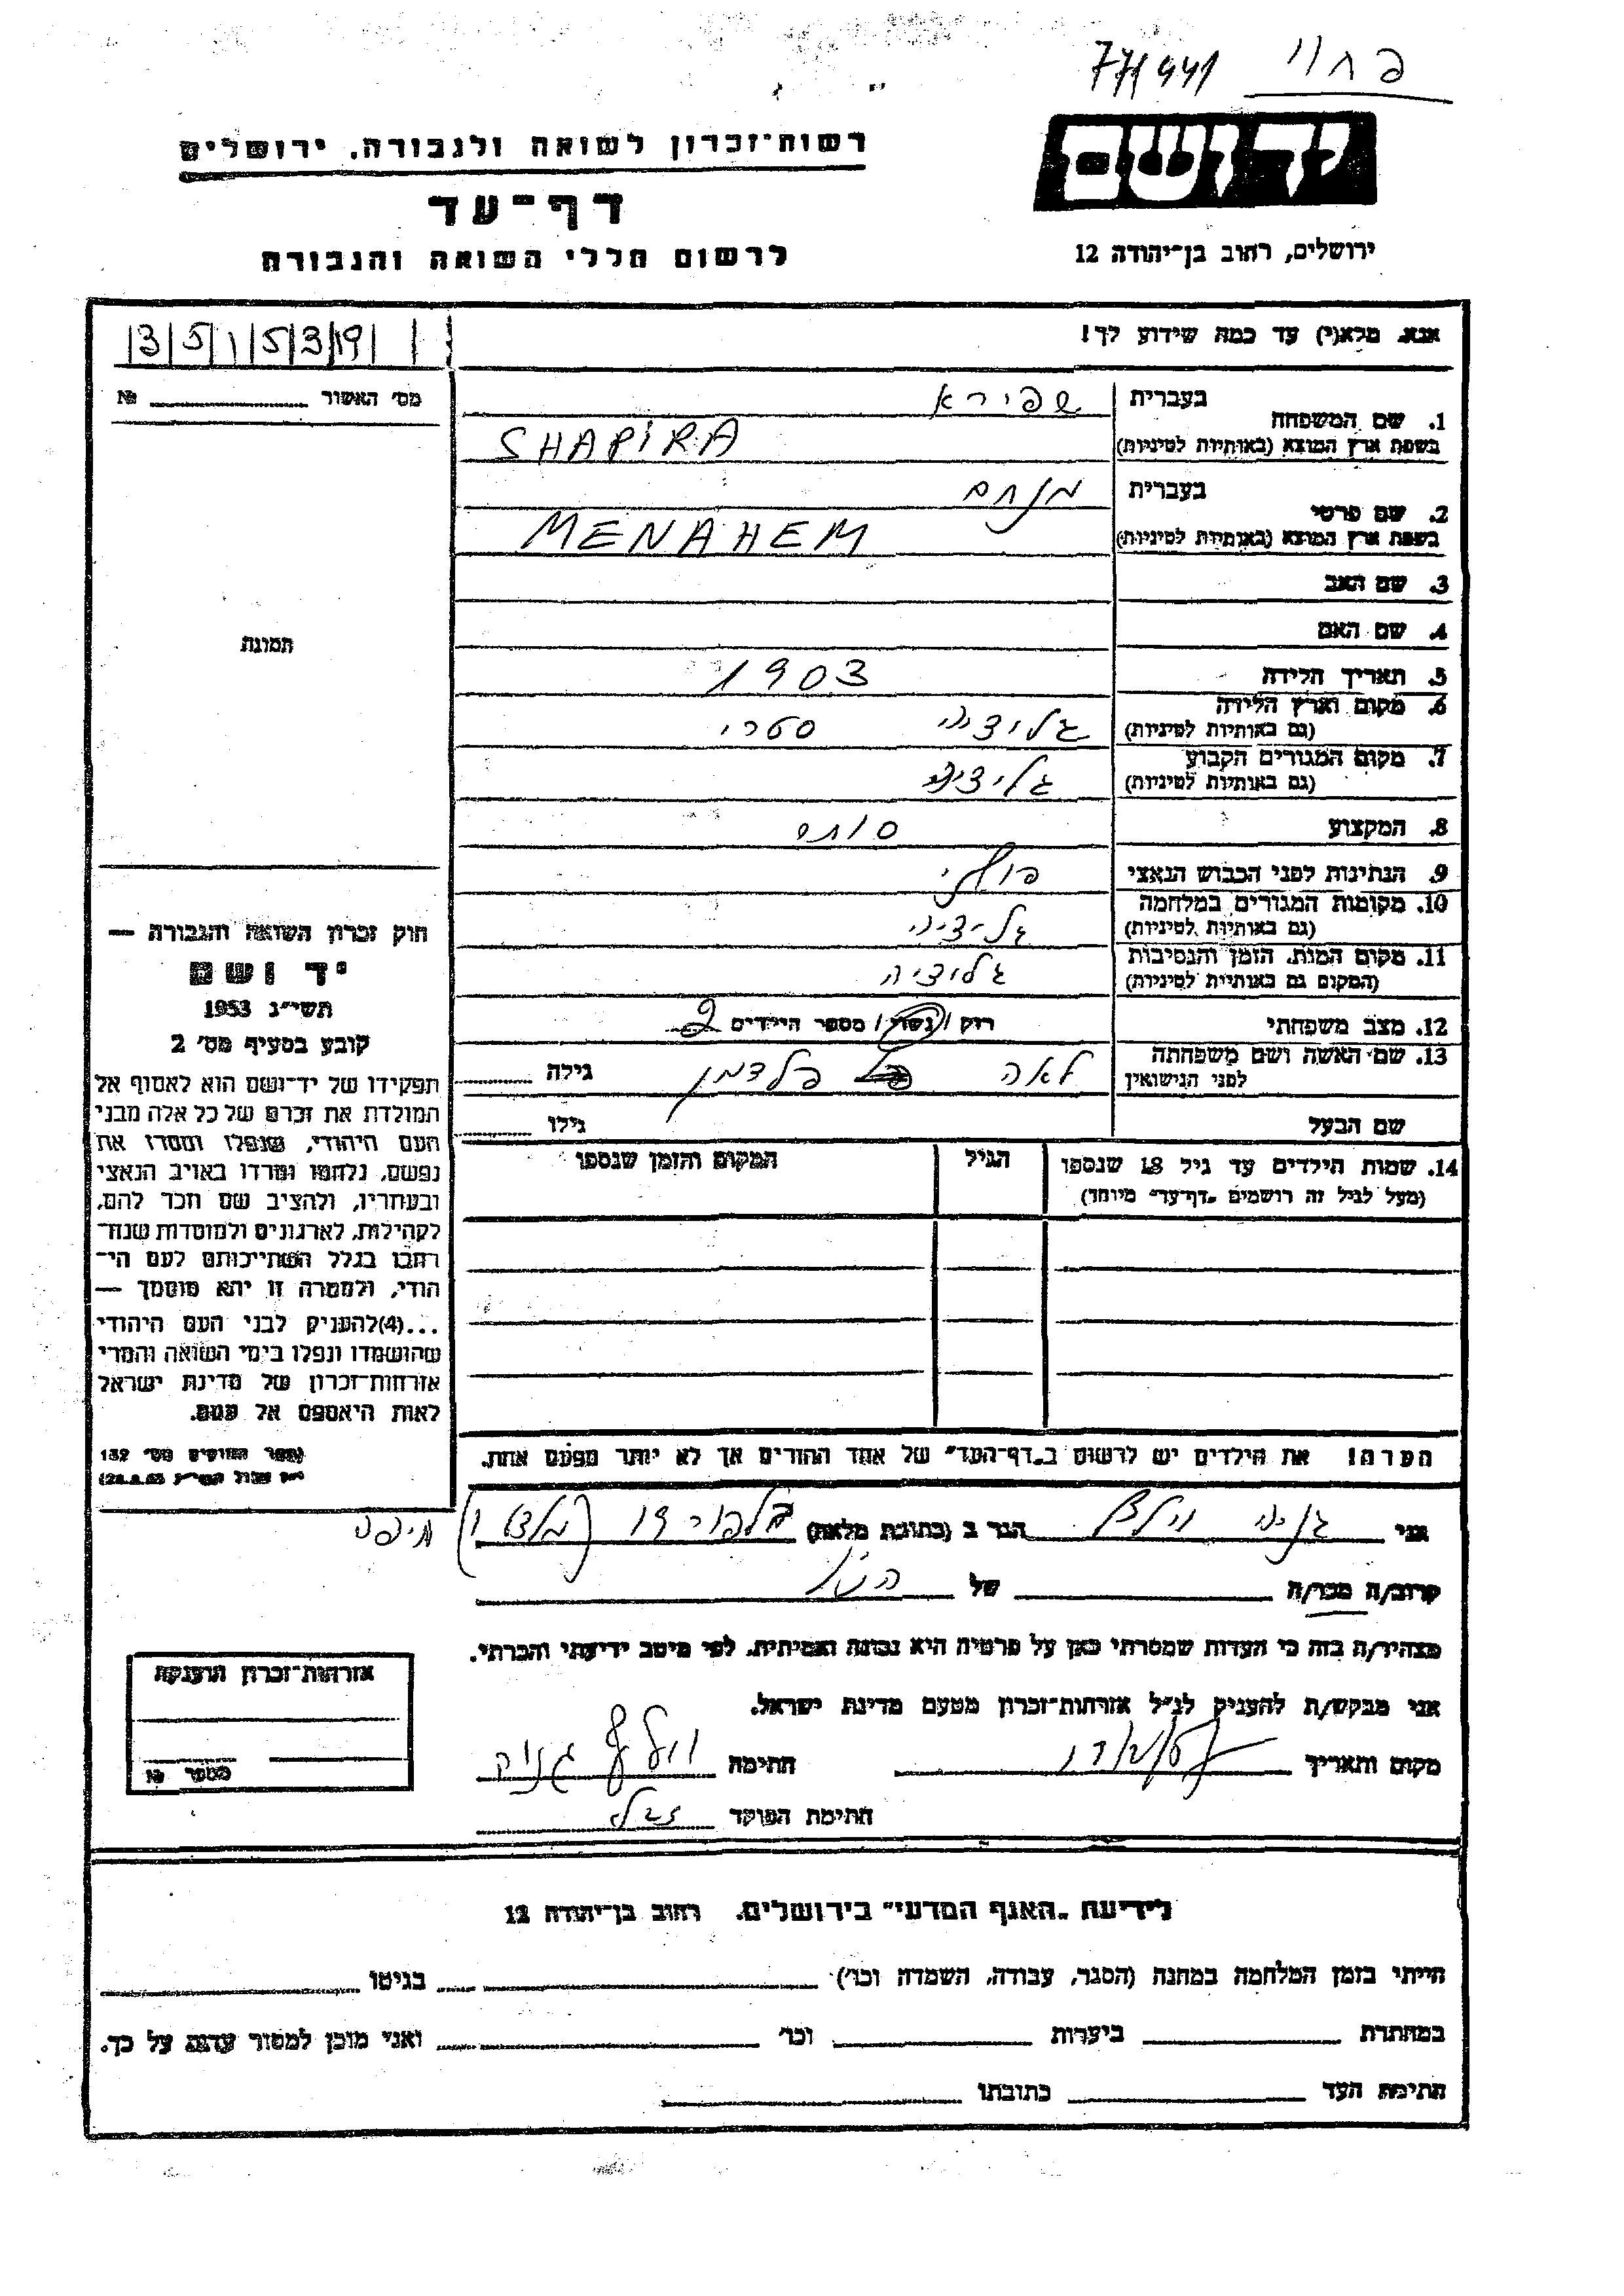 רשות־זכרון לשואה ולגבורה, ירושלים
דף־עד
לרשום חללי השואה והגבורה
יד ושם
ירושלים, רחוב בן־יהודה 12
אנא, מלא(י) עד כמה שידוע לך!
3 5 1 5 3 19
מס' האשור № 
1. שם המשפחה
בעברית שפירא
בשפת ארץ המוצא (באותיות לטיניות) SHAPIRA
2. שם פרטי
בעברית מנחם
בשפת ארץ המוצא (באותיות לטיניות) MENAHEM
3. שם האב
4. שם האם
תמונה
5. תאריך הלידה 1903
6. מקום וארץ הלידה
(גם באותיות לטיניות) גליציה סטרי
7. מקום המגורים הקבוע
(גם באותיות לטיניות) גליציה
8. המקצוע סוחר
9. הנתינות לפני הכבוש הנאצי פולני
10. מקומות המגורים במלחמה
(גם באותיות לטיניות) גליציה
11. מקום המות, הזמן והנסיבות
(המקום גם באותיות לטיניות) גליציה
12. מצב משפחתי רווק / נשוי / מספר הילדים 2
13. שם האשה ושם משפחתה
לפני הנישואין לאה פלדמן גילה
שם הבעל גילו
14. שמות הילדים עד גיל 18 שנספו הגיל המקום והזמן שנספו
(מעל לגיל זה רושמים „דף־עד" מיוחד)
חוק זכרון השואה והגבורה —
יד ושם
תשי"ג 1953
קובע בסעיף מס' 2
תפקידו של יד־ושם הוא לאסוף אל
המולדת את זכרם של כל אלה מבני
העם היהודי, שנפלו ומסרו את
נפשם, נלחמו ומרדו באויב הנאצי
ובעוזריו, ולהציב שם וזכר להם,
לקהילות, לארגונים ולמוסדות שנח־
רבו בגלל השתייכותם לעם הי־
הודי, ולמטרה זו יהא מוסמך —
...(4)להעניק לבני העם היהודי
שהושמדו ונפלו בימי השואה והמרי
אזרחות־זכרון של מדינת ישראל
לאות היאספם אל עמם.
(ספר החוקים מס' 132
28.8.53)
הערה! את הילדים יש לרשום ב„דף־העד" של אחד ההורים אך לא יותר מפעם אחת.
אני גניה הגר ב (כתובת מלאה) בלפור 19 חיפה
קרוב/ה מכר/ה של הנ"ל
מצהיר/ה בזה כי העדות שמסרתי כאן על פרטיה היא נכונה ואמיתית, לפי מיטב ידיעתי והכרתי.
אני מבקש/ת להעניק לנ"ל אזרחות־זכרון מטעם מדינת ישראל.
מקום ותאריך חתימה גניה
חתימת הפוקד
אזרחות־זכרון הוענקה
מספר №
לידיעת „האגף המדעי" בירושלים, רחוב בן־יהודה 12
הייתי בזמן המלחמה במחנה (הסגר, עבודה, השמדה וכו') בגיטו
במחתרת ביערות וכו' ואני מוכן למסור עדות על כך.
חתימת העד כתובתו